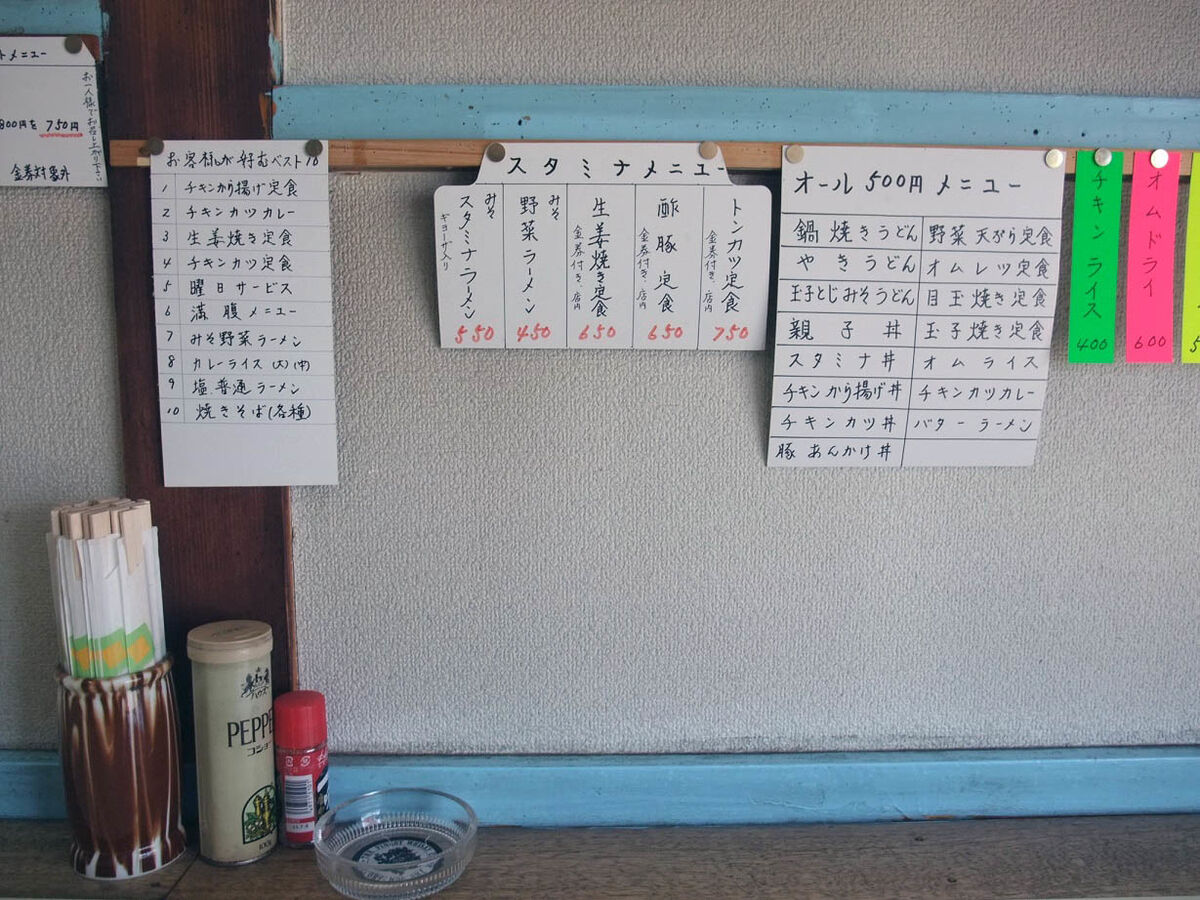 トメニュー
お一人様でお召し上がり下さい
800円を 750円
金券対象外
お客様が好むベスト10
1 チキンから揚げ定食
2 チキンカツカレー
3 生姜焼き定食
4 チキンカツ定食
5 曜日サービス
6 満腹メニュー
7 みそ野菜ラーメン
8 カレーライス(大)(中)
9 塩.普通ラーメン
10 焼きそば(各種)
スタミナメニュー
トンカツ定食
金券付き、店内
750
酢豚定食
金券付き、店内
650
生姜焼き定食
金券付き、店内
650
みそ
野菜ラーメン
450
みそ
スタミナラーメン
ギョーザ入り
550
オール500円メニュー
鍋焼きうどん 野菜天ぷら定食
やきうどん オムレツ定食
玉子とじみそうどん 目玉焼き定食
親子丼 玉子焼き定食
スタミナ丼 オムライス
チキンから揚げ丼 チキンカツカレー
チキンカツ丼 バターラーメン
豚あんかけ丼
チキンライス
400
オムドライ
600
5
ハウス
PEPPE
コショー
100g